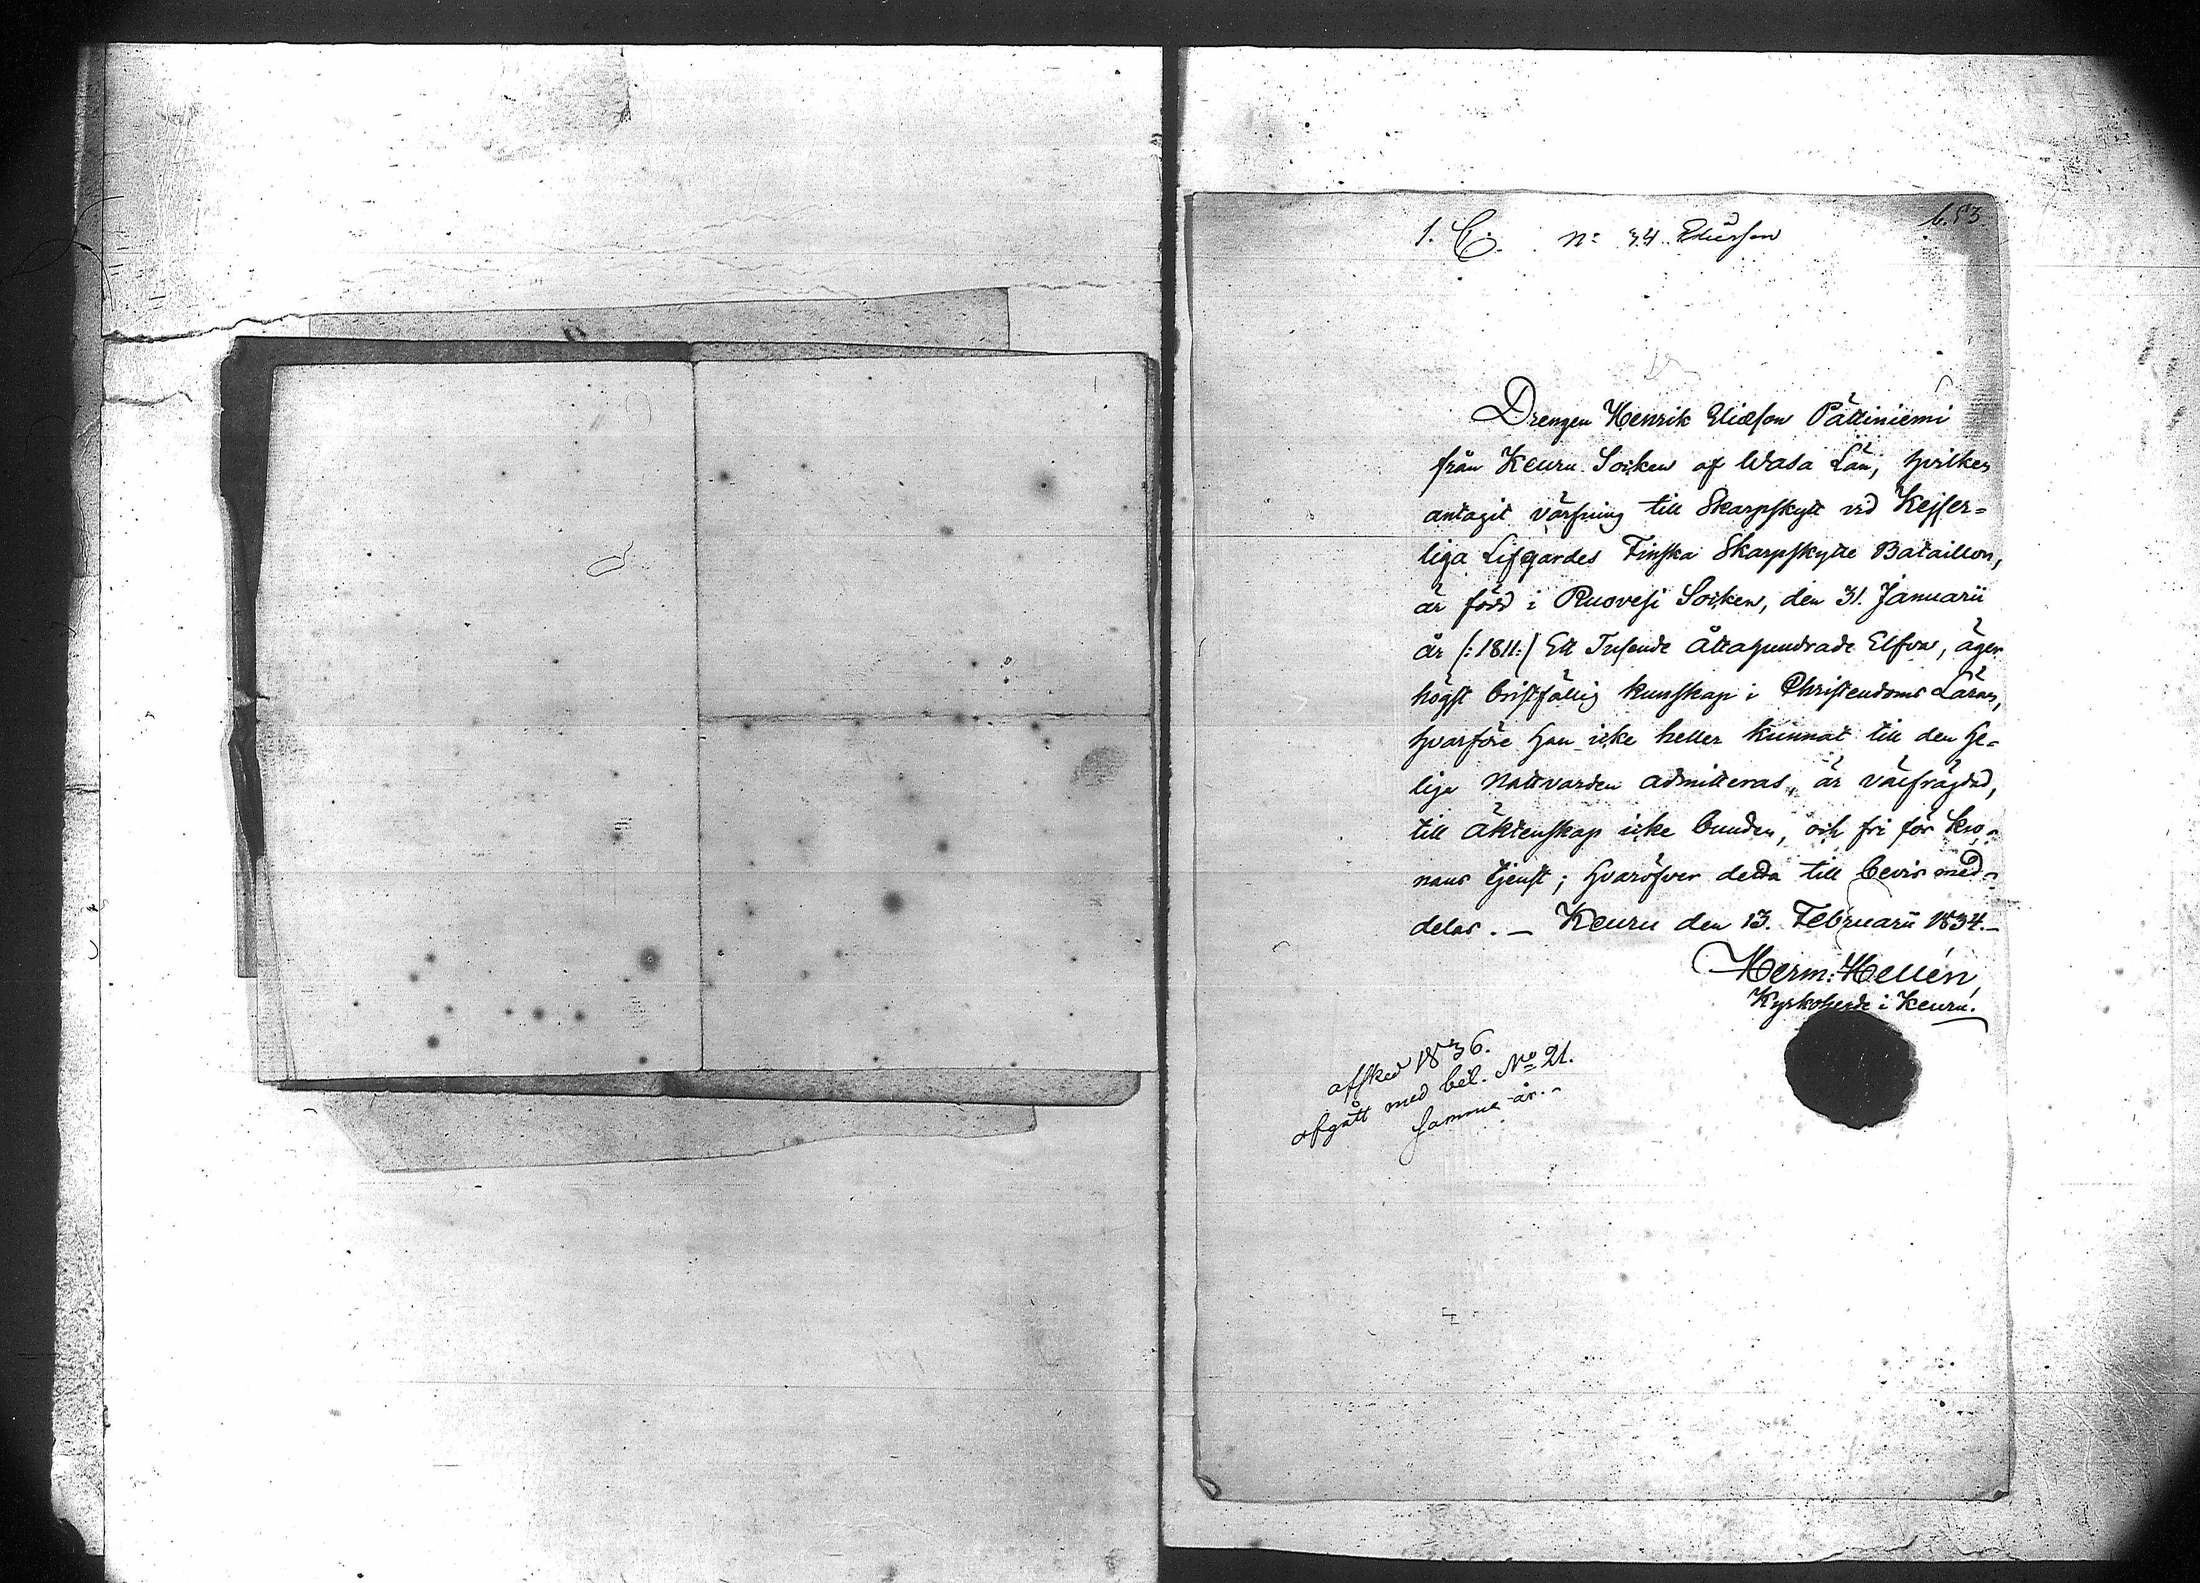 1. C. No 34. Eliasson
b.53.
Drengen Henrik Eliæson Pättiniemi
från Keuru Socken af Wasa Län, hvilken
antagit värfning till Skarpskytt vid Kejser-
liga Lifgardes Finska Skarpskytte Bataillon,
är född i Ruovesi Socken, den 31. Januarii
år /:1811:/ Ett Tusende Åttahundrade Elfva, äger
högst bristfällig kunskap i Christendoms Läran,
hvarföre han icke heller kunnat till den He-
liga Nattvarden admitteras, är välfrägdad,
till äktenskap icke bunden, och fri för kro-
nans tjenst; hvaröfver detta till bevis med-
delas. – Keuru den 13. Februarii 1834. –
Herm: Hellén,
Kyrkoherde i Keuru.
afsked 1836.
afgått med bel. No 21.
samma år. –